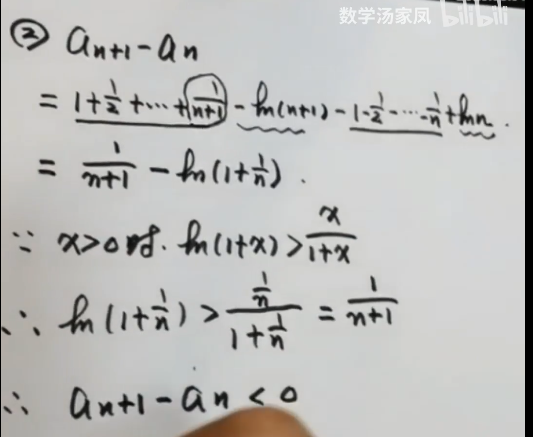 数学汤家凤 bilibili
② aₙ₊₁ - aₙ
= 1 + 1/2 + ··· + 1/(n+1) - ln(n+1) - 1 - 1/2 - ··· - 1/n + ln n .
= 1/(n+1) - ln(1 + 1/n) .
∵ x>0时. ln(1+x) > x/(1+x)
∴ ln(1 + 1/n) > (1/n)/(1 + 1/n) = 1/(n+1)
∴ aₙ₊₁ - aₙ < 0